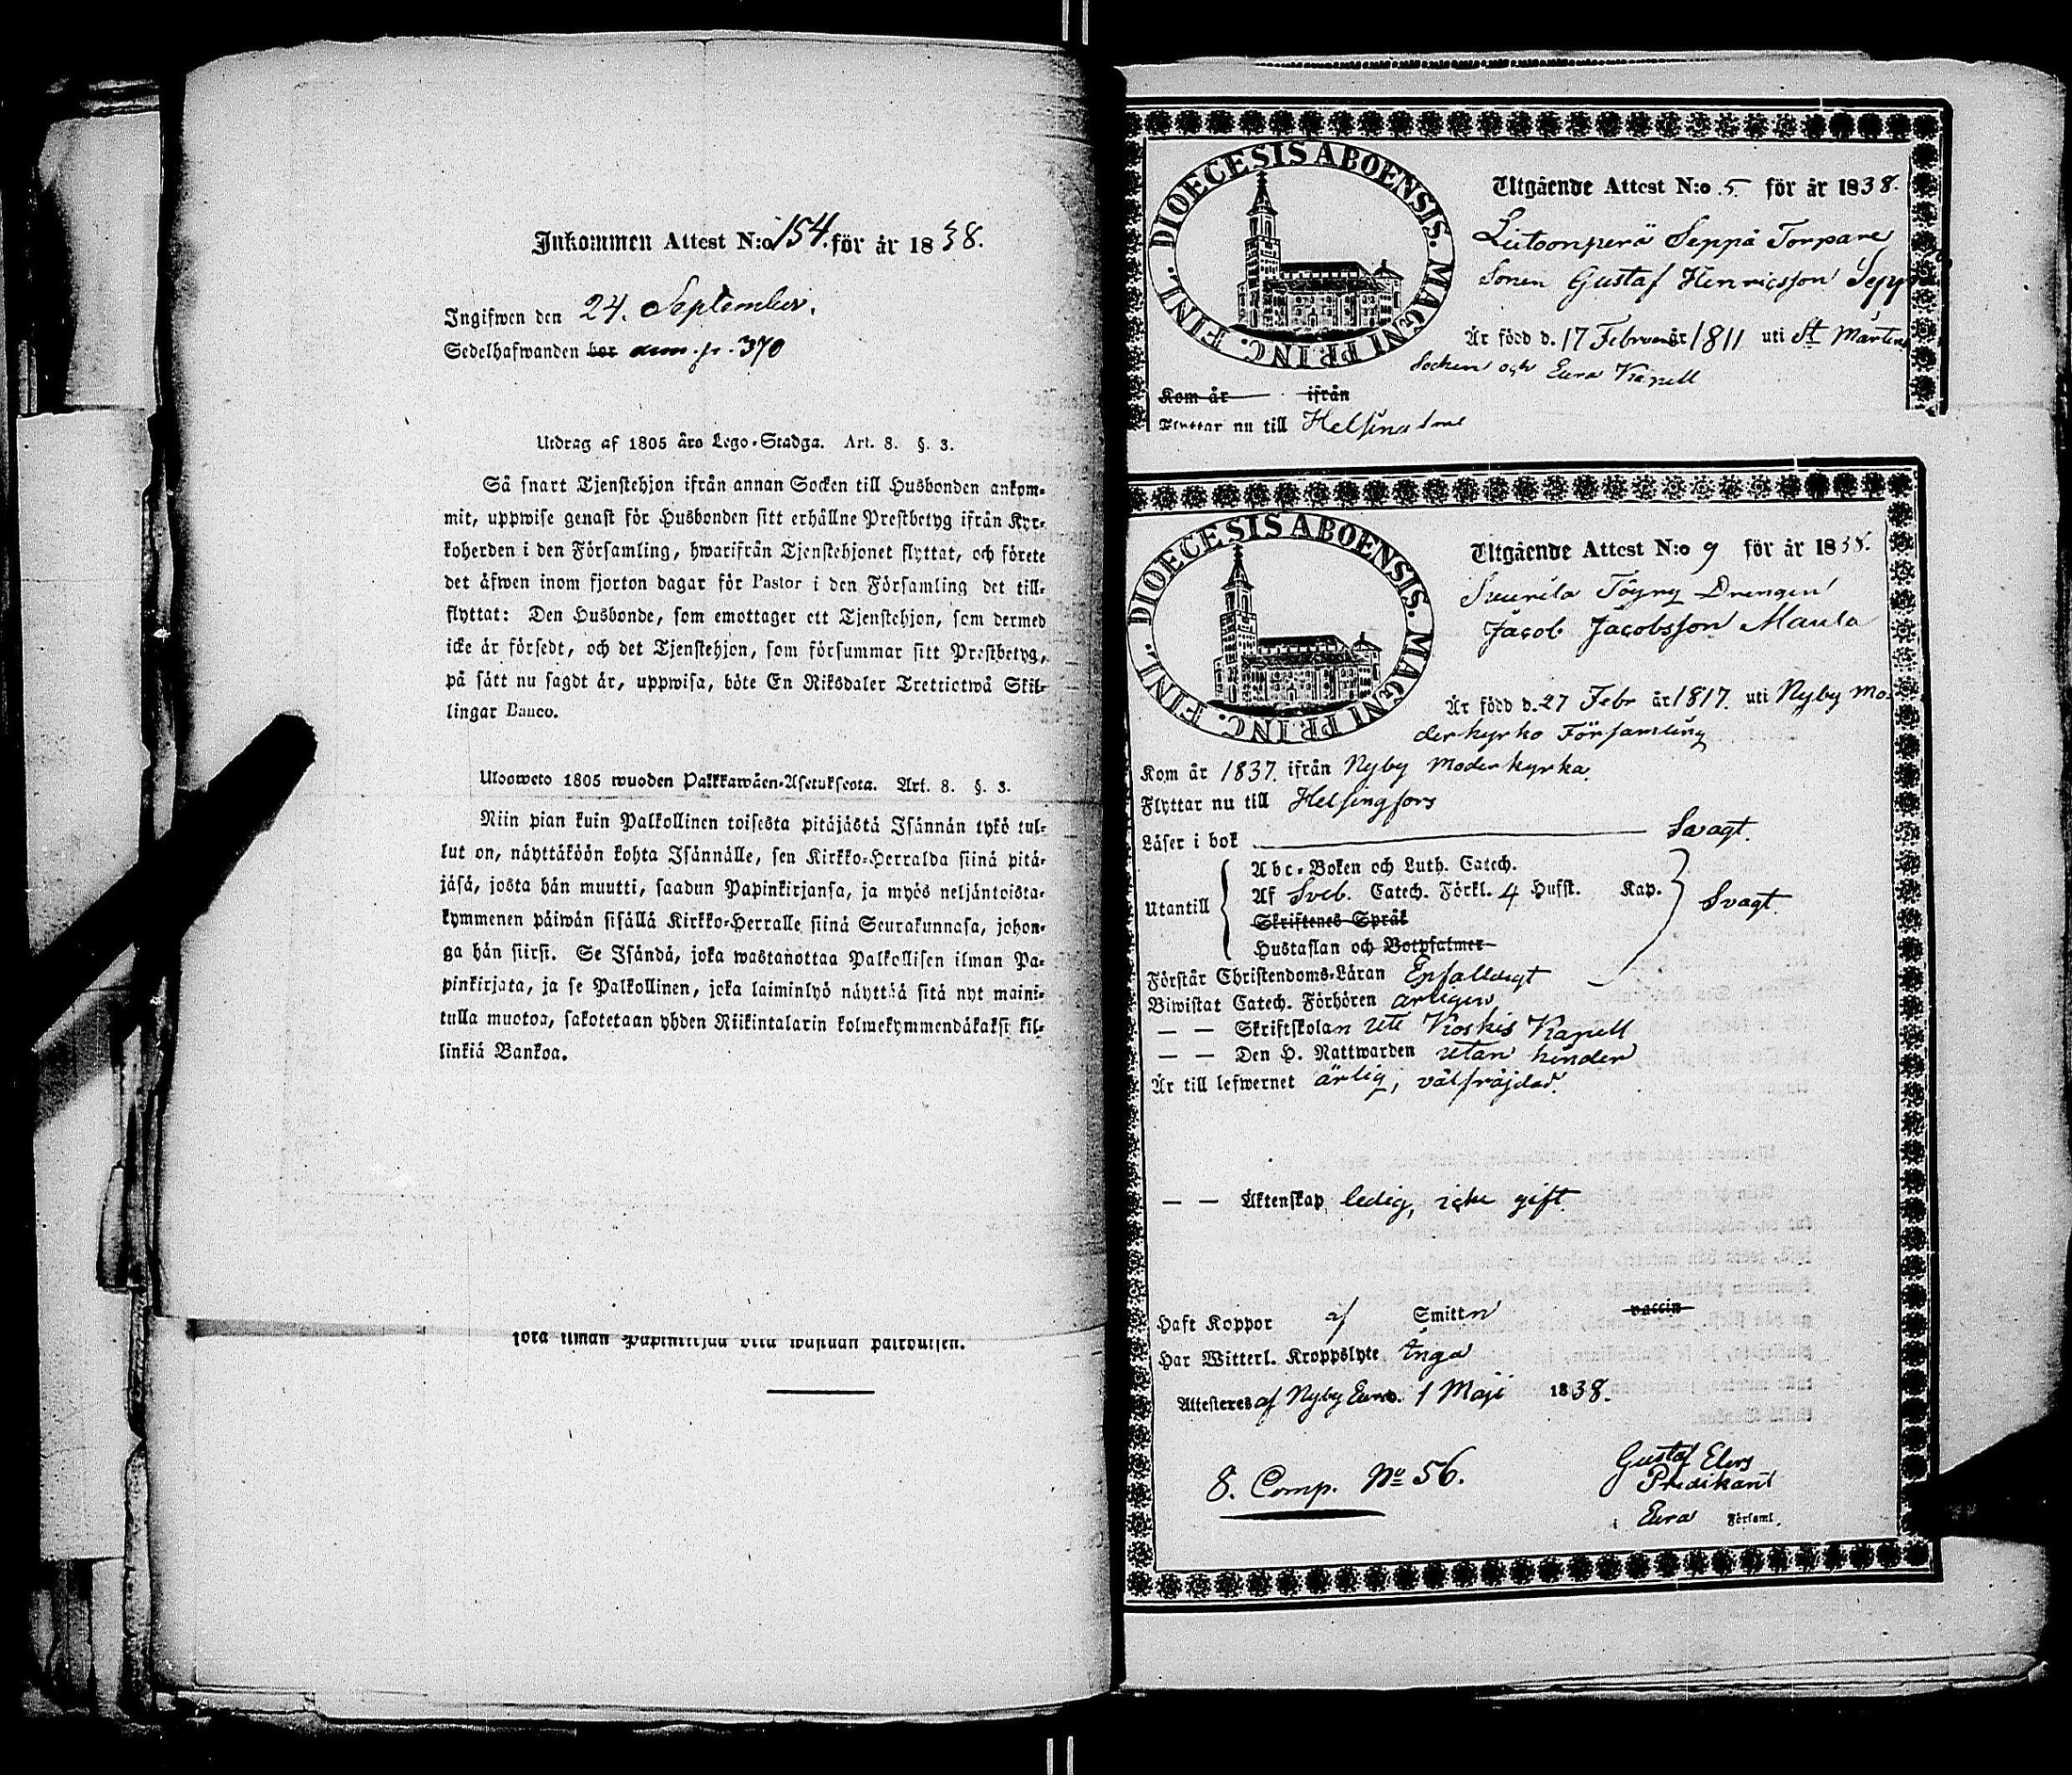 Inkommen Attest N:o 154. för år 1838.
Ingifwen den 24. September.
Sedelhafwanden bor 370
Utdrag af 1805 års Lego-Stadga. Art. 8. §. 3.
Så snart Tjenstehjon ifrån annan Socken till Husbonden ankom-
mit, uppwise genast för Husbonden sitt erhållne Prestbetyg ifrån Kyr-
koherden i den Församling, hwarifrån Tjenstehjonet flyttat, och förete
det äfwen inom fjorton dagar för Pastor i den Församling det till-
flyttat: Den Husbonde, som emottager ett Tjenstehjon, som dermed
icke är försedt, och det Tjenstehjon, som försummar sitt Prestbetyg,
på sätt nu sagdt är, uppwisa, böte En Riksdaler Trettiotwå Skil-
lingar Banco.
Ulosweto 1805 wuoden Palkkawäen-Asetuksesta. Art. 8. §. 3.
Niin pian kuin Palkollinen toisesta pitäjästä Isännän tykö tul-
lut on, näyttäköön kohta Isännälle, sen Kirkko-Herralda siinä pitä-
jäsä, josta hän muutti, saadun Papinkirjansa, ja myös neljäntoista-
kymmenen päiwän sisällä Kirkko-Herralle siinä Seurakunnasa, johon-
ga hän siirsi. Se Isändä, joka wastanottaa Palkollisen ilman Pa-
pinkirjata, ja se Palkollinen, joka laiminlyö näyttää sitä nyt maini-
tulla muotoa, sakotetaan yhden Riikintalarin kolmekymmendäkaksi kil-
linkiä Bankoa.
jota ilman Papinkirjaa otta wastaan palkollisen.
DIOECESIS ABOENSIS. MAGNI PRINC. FINL.
Utgående Attest N:o 5 för år 1838.
Liitoonperä Seppä Torpare
Sonen Gustaf Henricsson Sepp
Är född d. 17 Februari år 1811 uti St Mårtens
Socken och Eura Kapell
Kom år ifrån
Flyttar nu till Helsingfors
DIOECESIS ABOENSIS. MAGNI PRINC. FINL.
Utgående Attest N:o 9 för år 1838.
Töyry Drengen
Jacob Jacobsson Maula
Är född d. 27 Febr år 1817. uti Nyby Mo-
derkyrko Församling
Kom år 1837. ifrån Nyby Moderkyrka.
Flyttar nu till Helsingfors
Läser i bok Svagt.
Abc-Boken och Luth. Catech.
Utantill Af Sveb. Catech. Förkl. 4 Hufst. Kap. Svagt.
Skriftenes Språk
Hustaflan och Botpsalmer
Förstår Christendoms-Läran Enfaldigt
Biwistat Catech. Förhören årligen
— — Skriftskolan uti Koskis Kapell
— — Den H. Nattwarden utan hinder
Är till lefwernet ärlig, välfräjdad
— — Äktenskap ledig, icke gift.
Haft Koppor af Smitta vaccin
Har Witterl. Kroppslyte Inga
Attesteres af Nyby Eura. 1 Maji 1838.
8. Comp. No 56.
Gustaf Elers
Predikant
i Eura Församl.